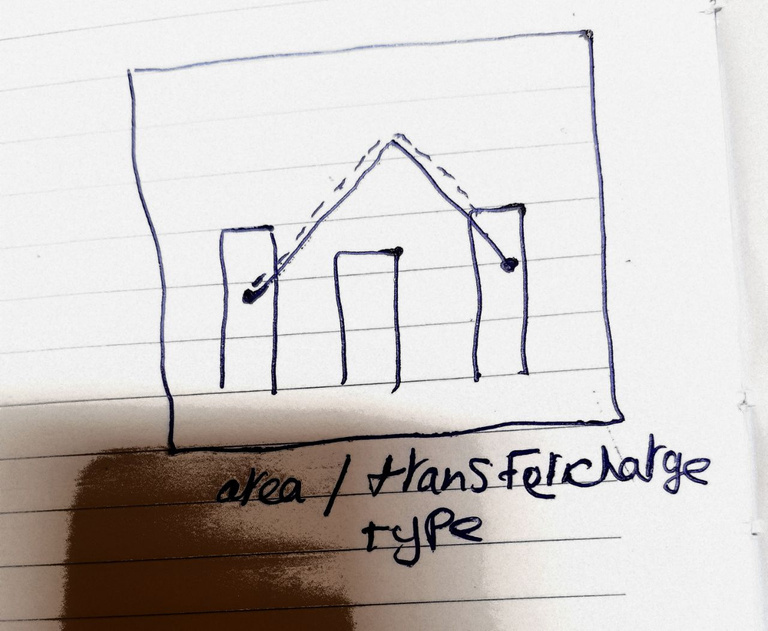 area / transfer charge
type